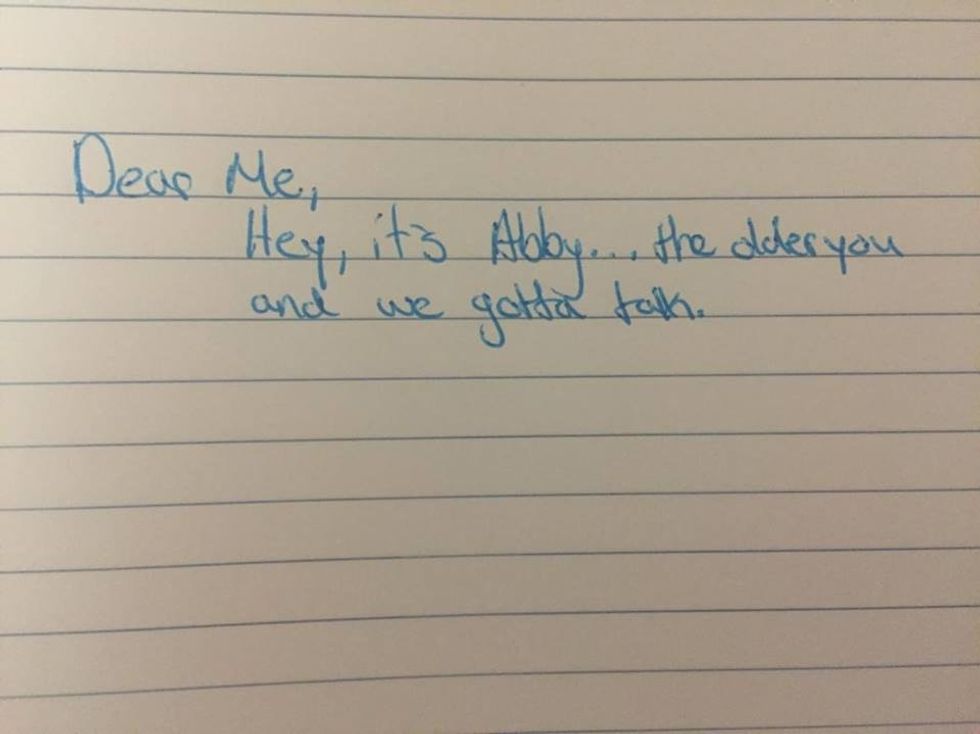 Dear Me,
Hey, it's Abby... the older you
and we gotta talk.